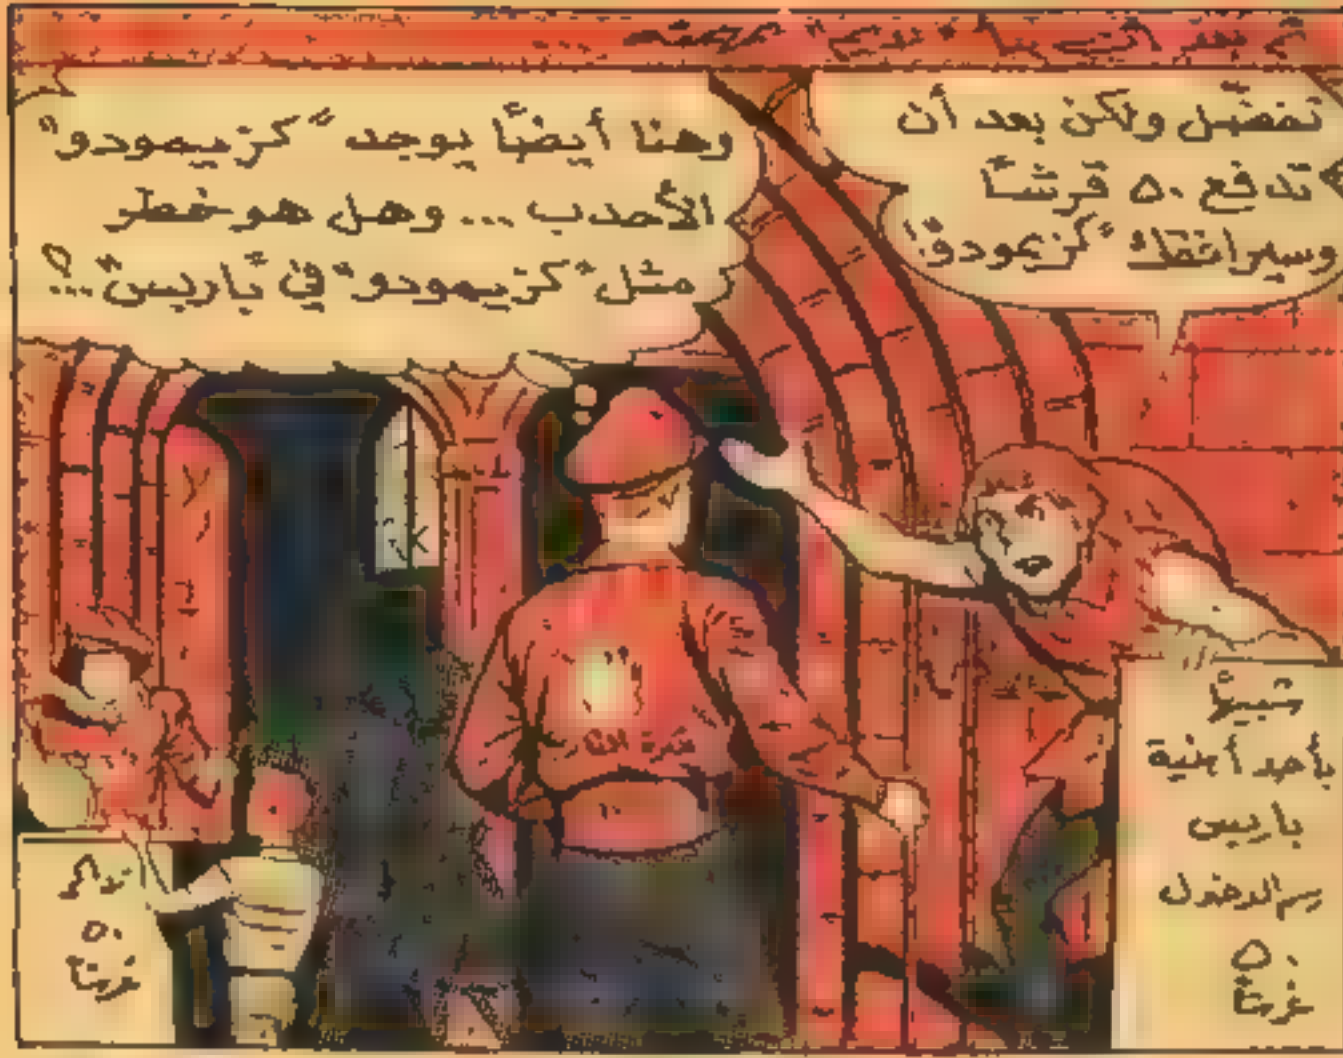 تفضّل ولكن بعد أن
تدفع ٥٠ قرشاً
وسيرافقك "كزيمودو"!
وهنا أيضاً يوجد "كزيمودو"
الأحدب ... وهل هو خطر
مثل "كزيمودو" في "باريس" ...؟
شبيهٌ
بأحد أبنية
باريس
رسم الدخول
٥٠
غرشاً
٥٠
غرشاً